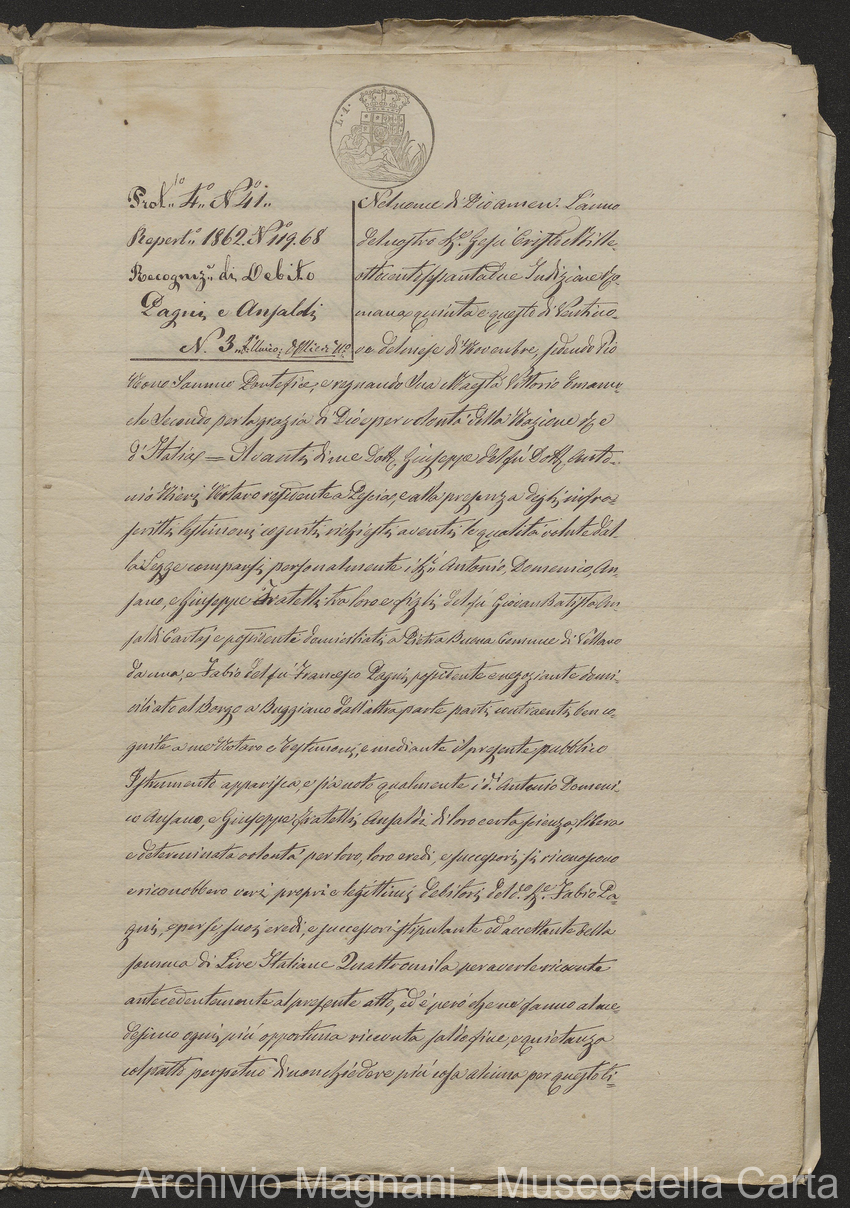 L. 1.
Prot.lo 4.o N.o 41.
Repert.o 1862. N.o 119.68
Recogniz.e di Debito
Pagni e Ansaldi
N. 3
Nel nome di Dio amen. L'anno
del nostro Sig.e Gesù Cristo Mille
ottocentosessantadue Indizione Ro-
mana quinta e questo dì Ventino-
ve del mese di Novembre, sedendo Pio
Nono Sommo Pontefice, e regnando Sua Maestà Vittorio Emanu-
ele Secondo per la grazia di Dio e per volontà della Nazione Re
d'Italia = Avanti di me Dott. Giuseppe del fu Dott. Anto-
nio Nieri Notaro residente a Pescia, e alla presenza degli infra-
scritti testimoni cogniti, richiesti, aventi le qualità volute dal-
la Legge comparsi personalmente i Sig.ri Antonio, Domenico, An-
sano, e Giuseppe Fratelli tra loro e figli del fu Giovan Batista An-
saldi Cartaj e possidente domiciliati a Pietra Buona Comune di Vellano
da una, e Fabio del fu Francesco Pagni, possidente e negoziante domi-
ciliato al Borgo a Buggiano dall'altra parte parti contraenti ben co-
gnite a me Notaro e Testimoni, e mediante il presente pubblico
Istrumento apparisca, e sia noto qualmente i d.i Antonio Domeni-
co Ansano, e Giuseppe fratelli Ansaldi di loro certa scienza, libera
e determinata volontà per loro, loro eredi, e successori si riconoscono
e riconobbero veri propri e legittimi debitori del d.o Sig.e Fabio Pa-
gni, e per se, suoi eredi, e successori stipulante ed accettante della
somma di Lire Italiane Quattromila per averle ricevute
antecedentemente al presente atto, ed è però che ne fanno al me-
desimo ogni più opportuna ricevuta saldo fine, e quietanza
col patto perpetuo di non chiedere più cosa alcuna per questo ti-
Archivio Magnani - Museo della Carta